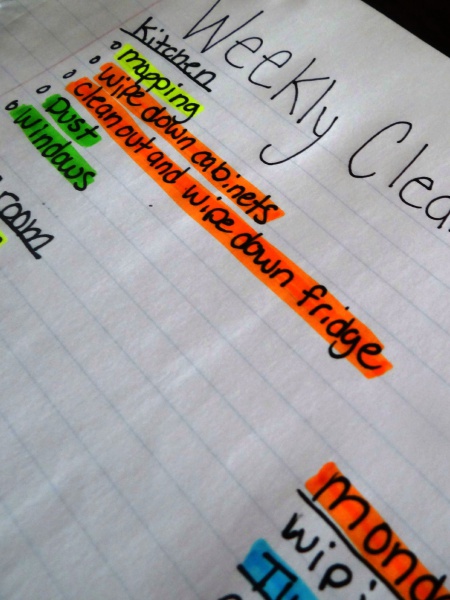 Weekly Clea
Kitchen
mopping
wipe down cabinets
clean out and wipe down fridge
Dust
windows
room
mond
wipi
Th